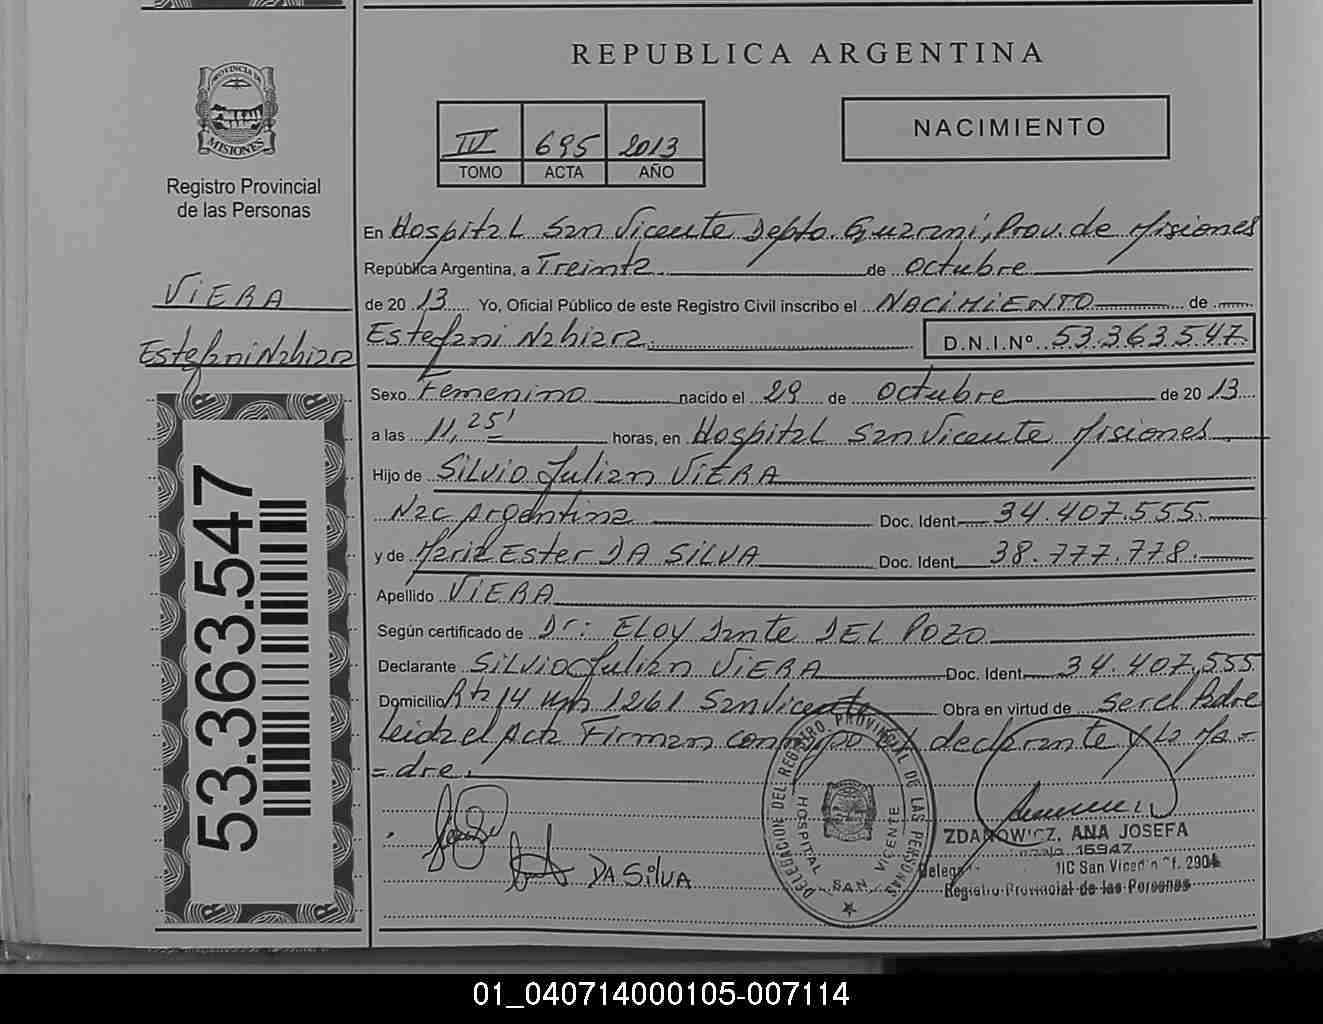 REPUBLICA ARGENTINA
PROVINCIA DE
MISIONES
Registro Provincial
de las Personas
VIERA
Estefani Nahiara
53.363.547
IV 695 2013
TOMO ACTA AÑO
NACIMIENTO
En Hospital San Vicente Depto. Guarani, Prov. de Misiones
República Argentina, a Treinta de octubre
de 2013 Yo, Oficial Público de este Registro Civil inscribo el NACIMIENTO de
Estefani Nahiara D.N.I.Nº 53.363.547
Sexo Femenino nacido el 29 de octubre de 2013
a las 11,25' horas, en Hospital San Vicente Misiones
Hijo de Silvio Julian VIERA
Nac Argentina Doc. Ident 34.407.555
y de Maria Ester DA SILVA Doc. Ident 38.777.778
Apellido VIERA
Según certificado de Dr: ELOY Dante DEL POZO
Declarante Silvio Julian VIERA Doc. Ident 34.407.555
Domicilio Rta 14 Km 1261 San Vicente Obra en virtud de ser el Padre
Leida el Acta Firman conmigo el declarante y la Ma=
=dre.
DA SILVA
DELEGACION DEL REGISTRO PROVINCIAL DE LAS PERSONAS
HOSPITAL SAN VICENTE
ZDANOWICZ, ANA JOSEFA
16947
San Vicente Of. 2904
Registro Provincial de las Personas
01_040714000105-007114